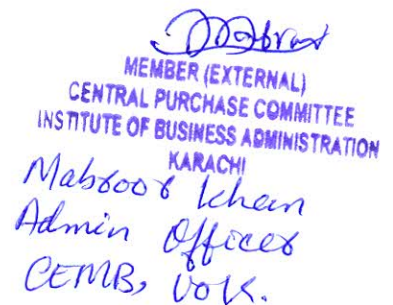 MEMBER (EXTERNAL)
CENTRAL PURCHASE COMMITTEE
INSTITUTE OF BUSINESS ADMINISTRATION
KARACHI
Mabroor Khan
Admin Officer
CEMB, UoK.